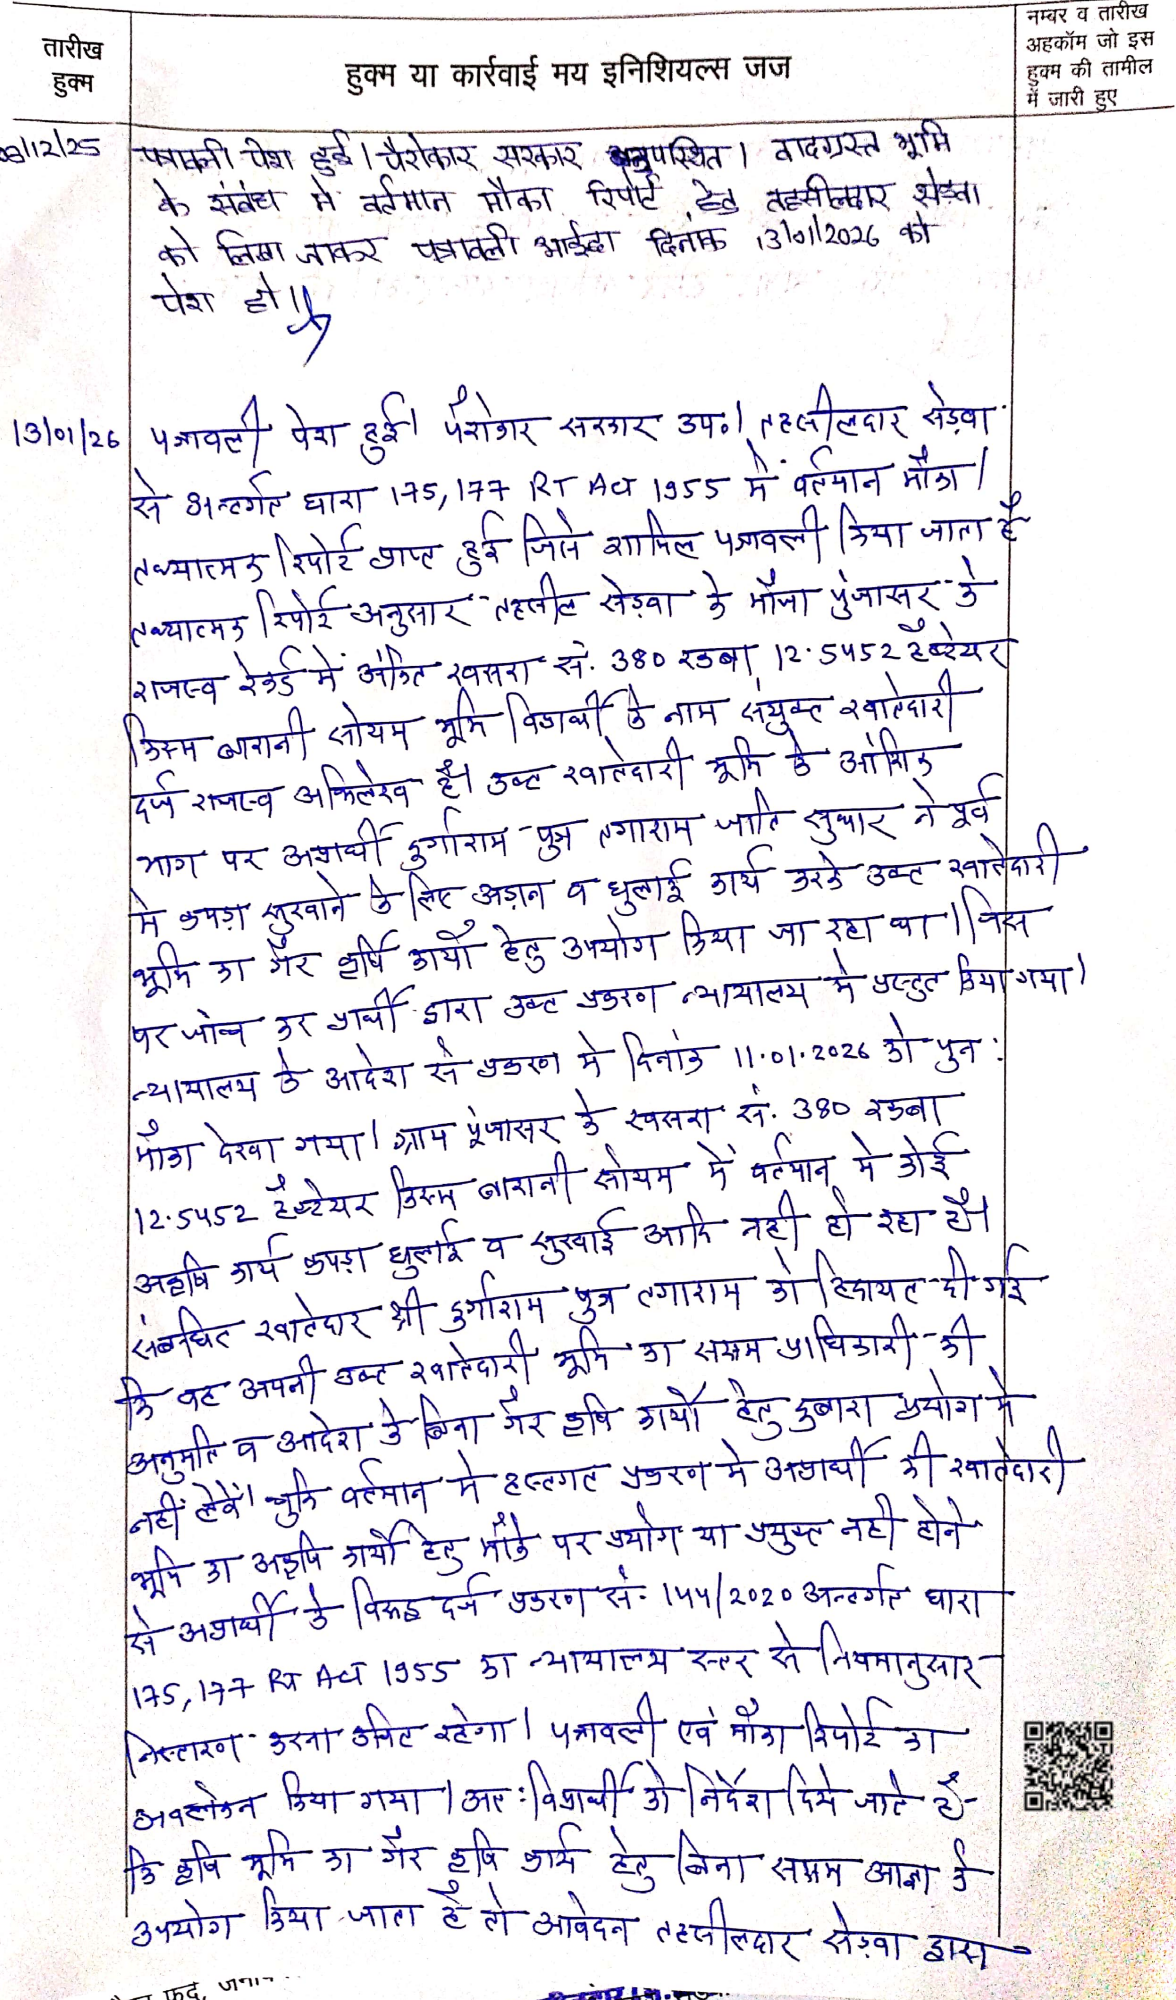 तारीख
हुक्म
हुक्म या कार्रवाई मय इनिशियल्स जज
नम्बर व तारीख
अहकॉम जो इस
हुक्म की तामील
में जारी हुए
08/12/25 पत्रावली पेश हुई। पैरोकार सरकार अनुपस्थित। वादग्रस्त भूमि
के संबंध मे वर्तमान मौका रिपोर्ट हेतु तहसीलदार सेड़वा
को लिखा जाकर पत्रावली आईंदा दिनांक 13/01/2026 को
पेश हो।।
13/01/26 पत्रावली पेश हुई। पैरोकार सरकार उप०। तहसीलदार सेड़वा
से अन्तर्गत धारा 175,177 RT Act 1955 में वर्तमान मौका।
तथ्यात्मक रिपोर्ट प्राप्त हुई जिसे शामिल पत्रावली किया जाता है
तथ्यात्मक रिपोर्ट अनुसार तहसील सेड़वा के मौजा पुंजासर के
राजस्व रेकर्ड में अंकित खसरा सं. 380 रकबा 12.5452 हैक्टेयर
किस्म बारानी सोयम भूमि विप्रार्थी के नाम संयुक्त खातेदारी
दर्ज राजस्व अभिलेख है। उक्त खातेदारी भूमि के आंशिक
भाग पर अप्रार्थी दुर्गाराम पुत्र तगाराम जाति सुथार ने पूर्व
मे कपड़ा सुखाने के लिए अड़ान व धुलाई कार्य करके उक्त खातेदारी
भूमि का गैर कृषि कार्यो हेतु उपयोग किया जा रहा था। जिस
पर जाँच कर प्रार्थी द्वारा उक्त प्रकरण न्यायालय मे प्रस्तुत किया गया।
न्यायालय के आदेश से प्रकरण मे दिनांक 11.01.2026 को पुन:
मौका देखा गया। ग्राम पूंजासर के खसरा सं. 380 रकबा
12.5452 हैक्टेयर किस्म बारानी सोयम में वर्तमान मे कोई
अकृषि कार्य कपड़ा धुलाई व सुखाई आदि नही हो रहा है।
संबन्धित खातेदार श्री दुर्गाराम पुत्र तगाराम को हिदायत दी गई
कि वह अपनी उक्त खातेदारी भूमि का सक्षम प्राधिकारी की
अनुमति व आदेश के बिना गैर कृषि कार्यो हेतु दुबारा प्रयोग मे
नहीं लेवें। चुकि वर्तमान मे हस्तगत प्रकरण मे अप्रार्थी की खातेदारी
भूमि का अकृषि कार्यो हेतु मौके पर प्रयोग या प्रयुक्त नही होने
से अप्रार्थी के विरूद्ध दर्ज प्रकरण सं. 144/2020 अन्तर्गत धारा
175,177 RT Act 1955 का न्यायालय स्तर से नियमानुसार
निस्तारण करना उचित रहेगा। पत्रावली एवं मौका रिपोर्ट का
अवलोकन किया गया। अत: विप्रार्थी को निर्देश दिये जाते है-
कि कृषि भूमि का गैर कृषि कार्य हेतु बिना सक्षम आज्ञा के
उपयोग किया जाता है तो आवेदन तहसीलदार सेड़वा द्वारा